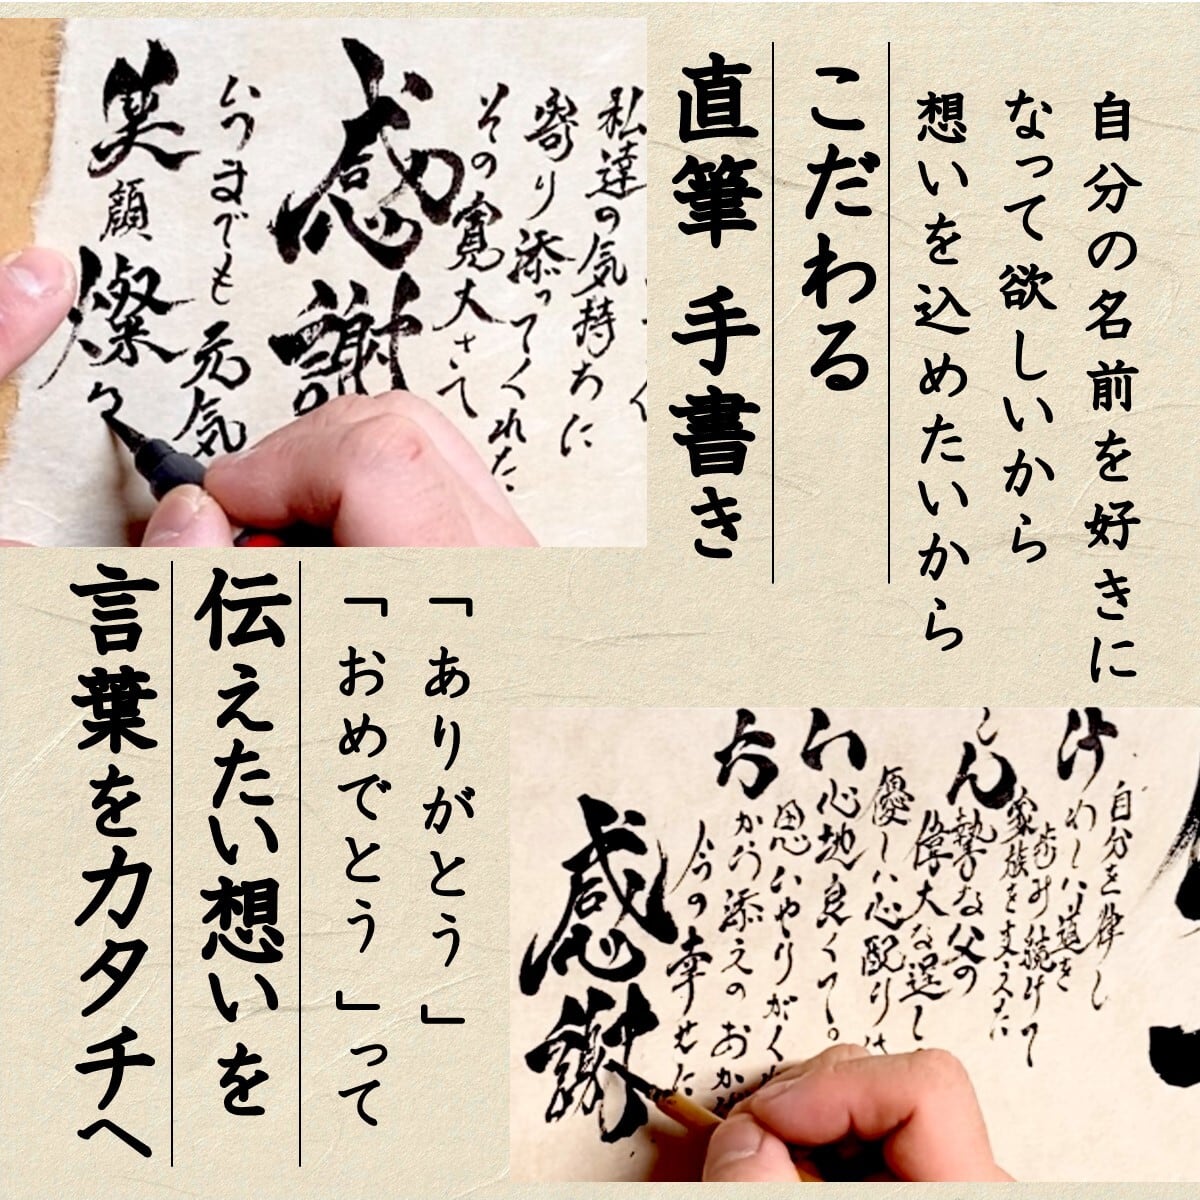 自分の名前を好きに
なって欲しいから
想いを込めたいから
こだわる
直筆 手書き
私達の気持ちに
寄り添ってくれた
その寛大さて
感謝
いつまでも元気
笑顔燦々
「ありがとう」
「おめでとう」って
伝えたい想いを
言葉をカタチへ
自分を律し
けわしい道を
歩み続けて
家族を支えた
けん
勢な父の
偉大な逞し
優しい心配り
い心地良くて。
思いやりがくれ
おかげ添えのおかげ
今の幸せた
感謝